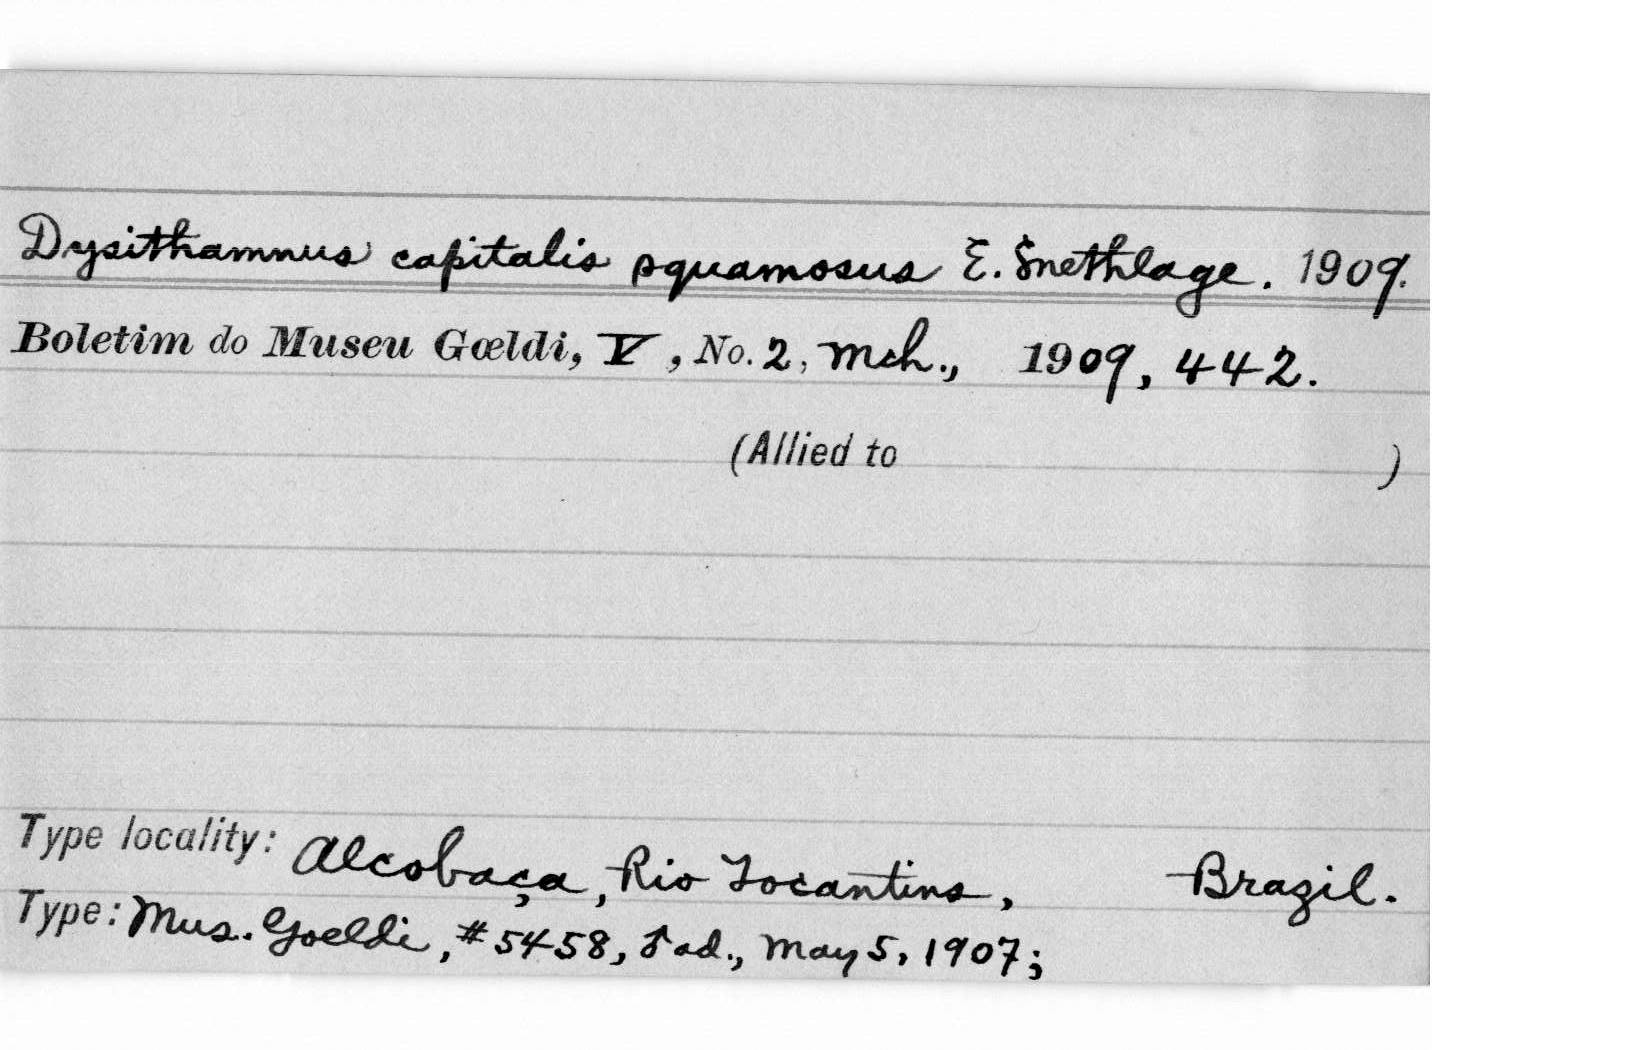 Dysithamnus capitalis squamosus E. Snethlage. 1909.
Boletim do Museu Gœldi, V, No. 2, Mch., 1909, 442.
(Allied to )
Type locality: Alcobaça, Rio Tocantins, Brazil.
Type: Mus. Goeldi, #5458, ♂ ad., May 5, 1907;